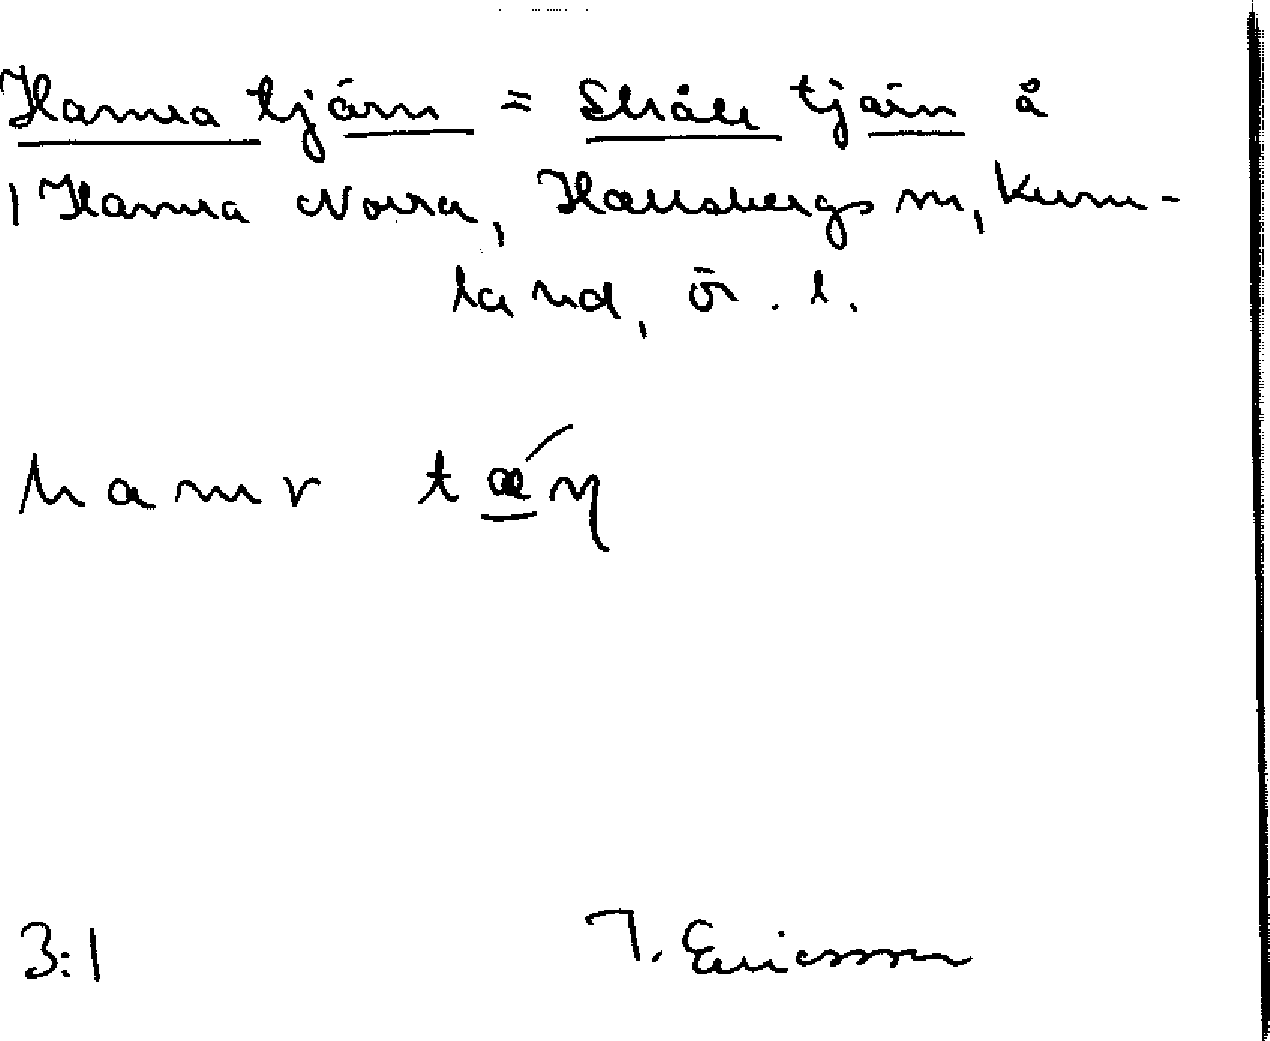 Hamra tjärn = Stråle tjärn å
1 Hamra Norra, Hallsbergs sn, Kum-
la hd, ör. l.
hamr tǽɳ
3:1 T. Ericsson